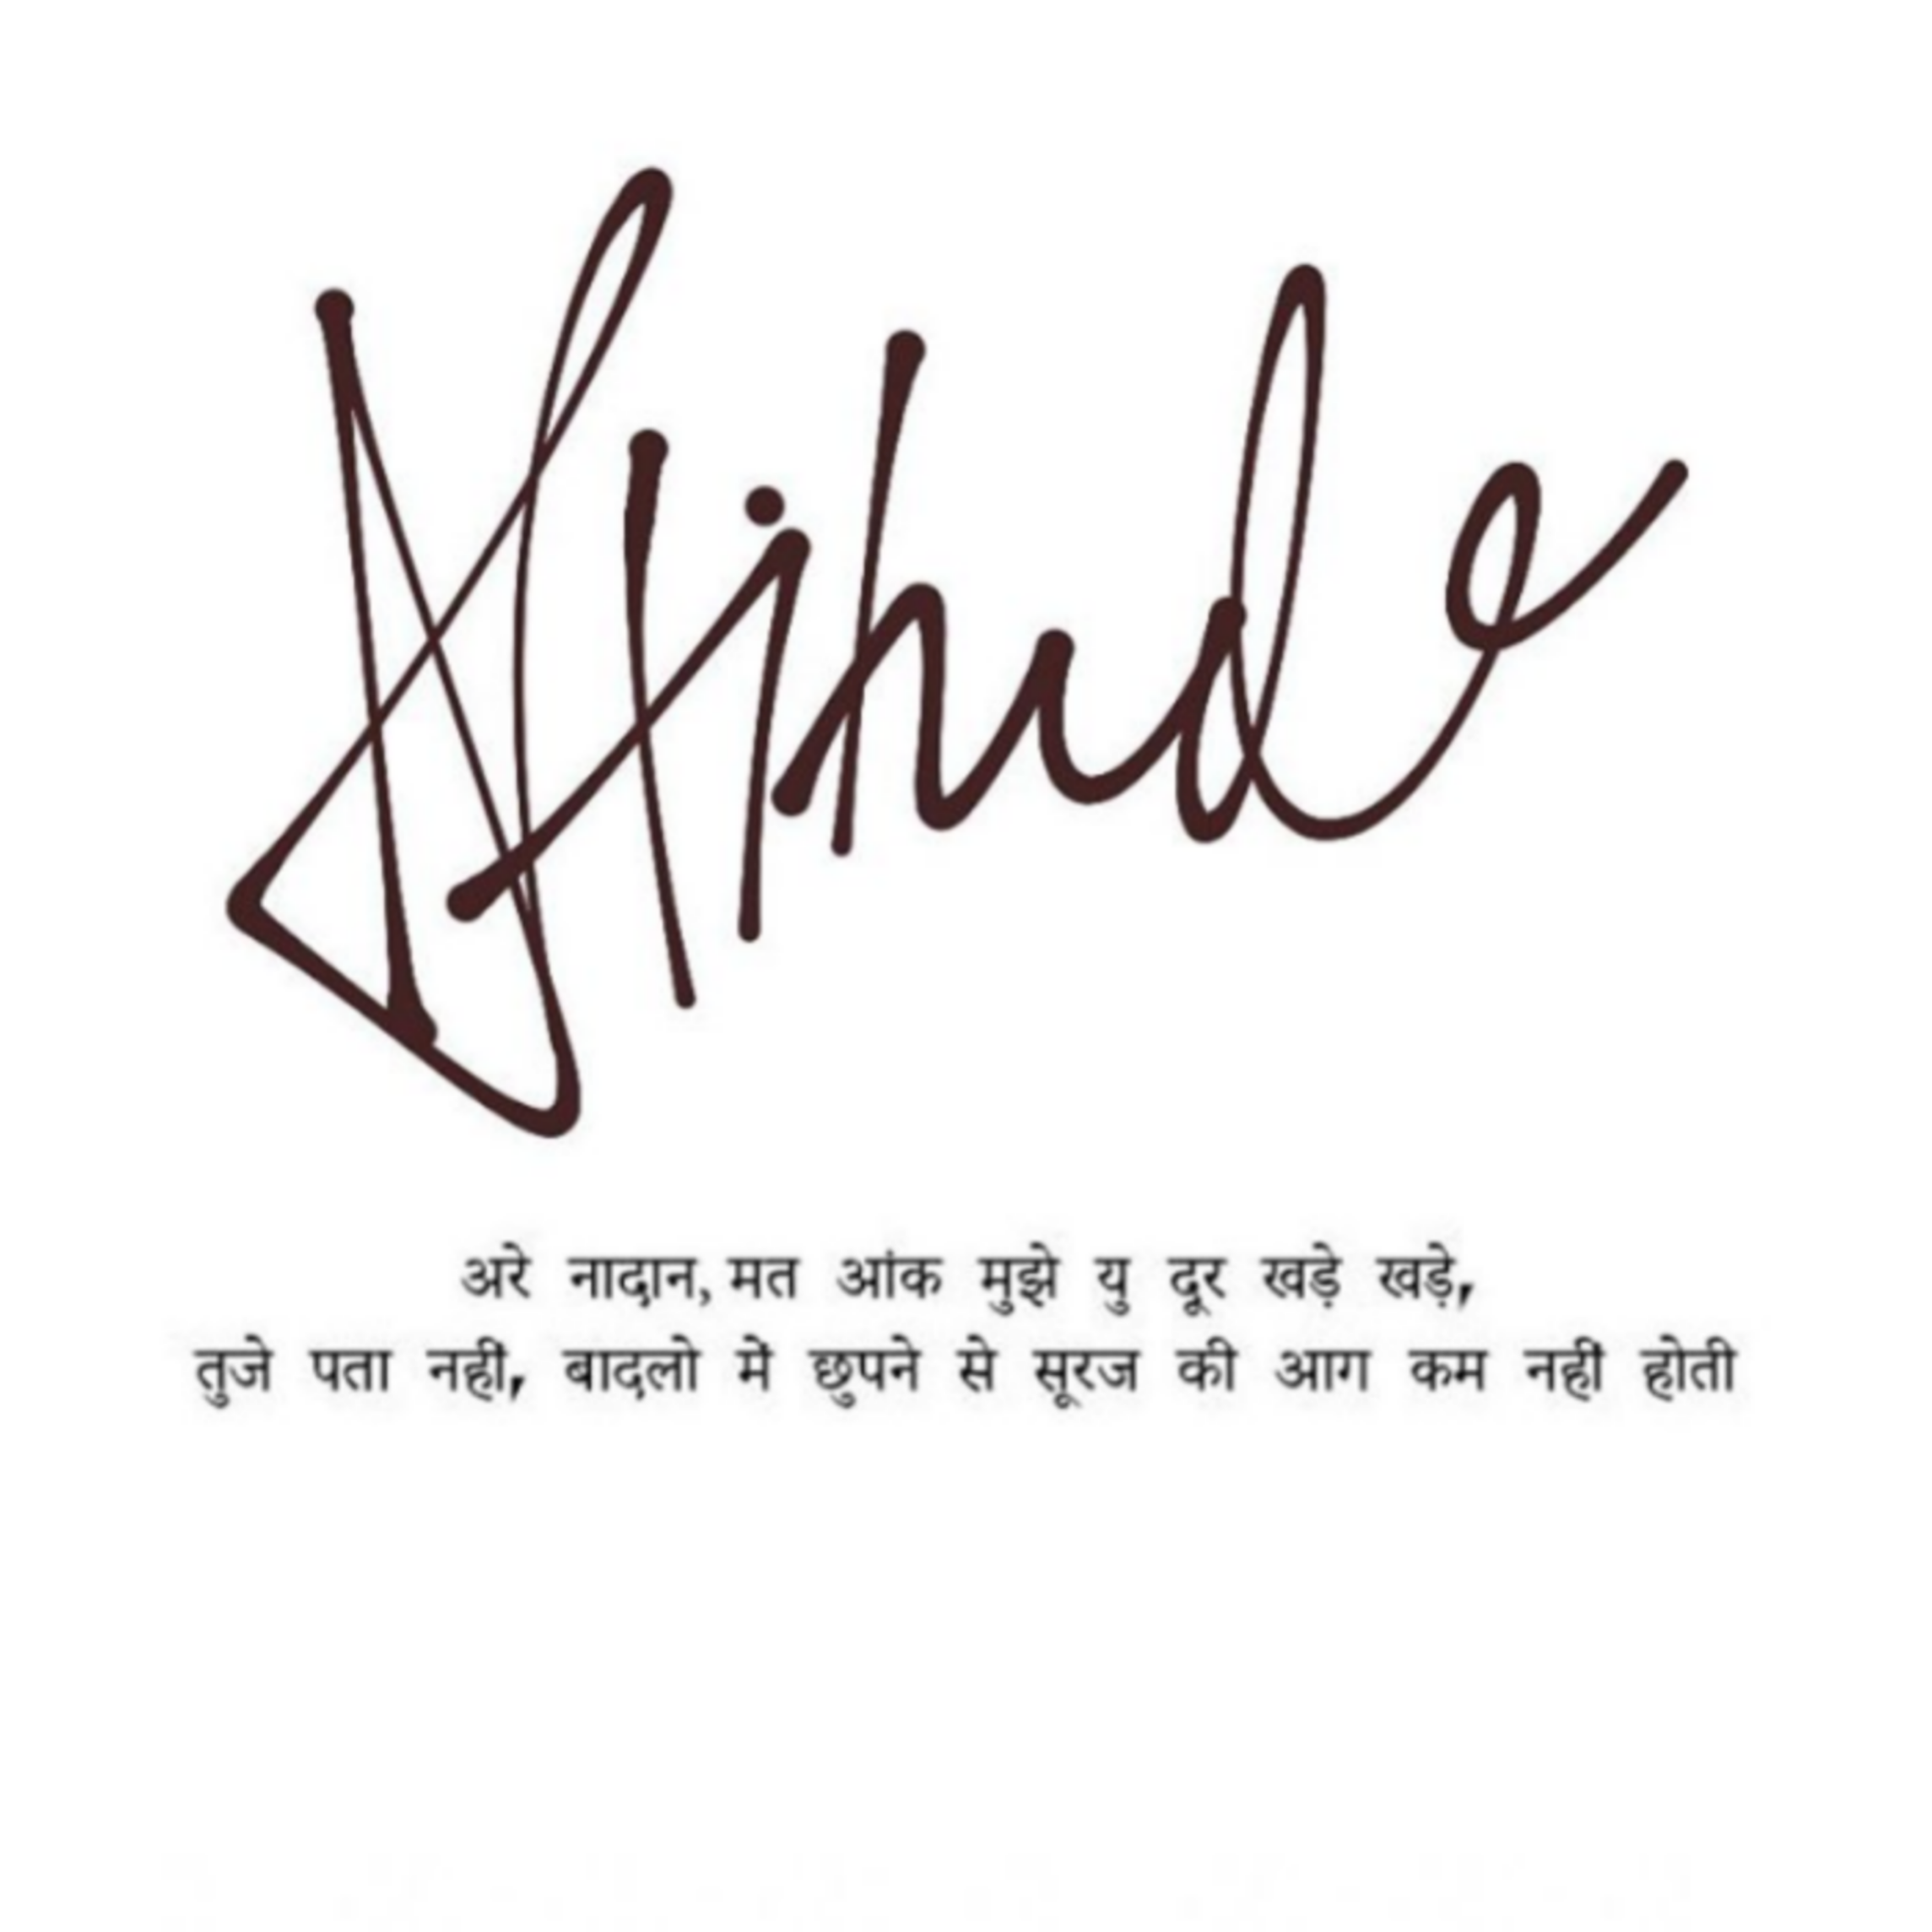 अरे नादान, मत आंक मुझे यु दूर खड़े खड़े,
तुजे पता नहीं, बादलो में छुपने से सूरज की आग कम नहीं होती